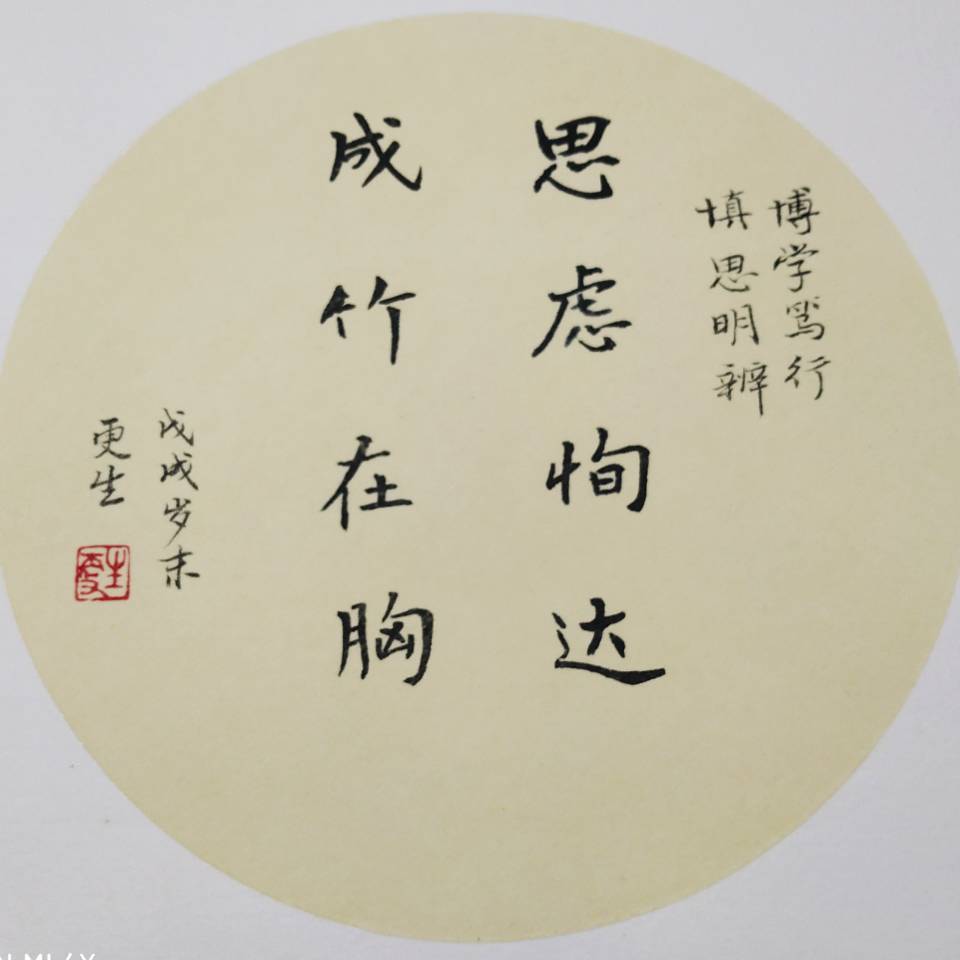 博学笃行
慎思明辨
思虑恂达
成竹在胸
戊戌岁末
更生